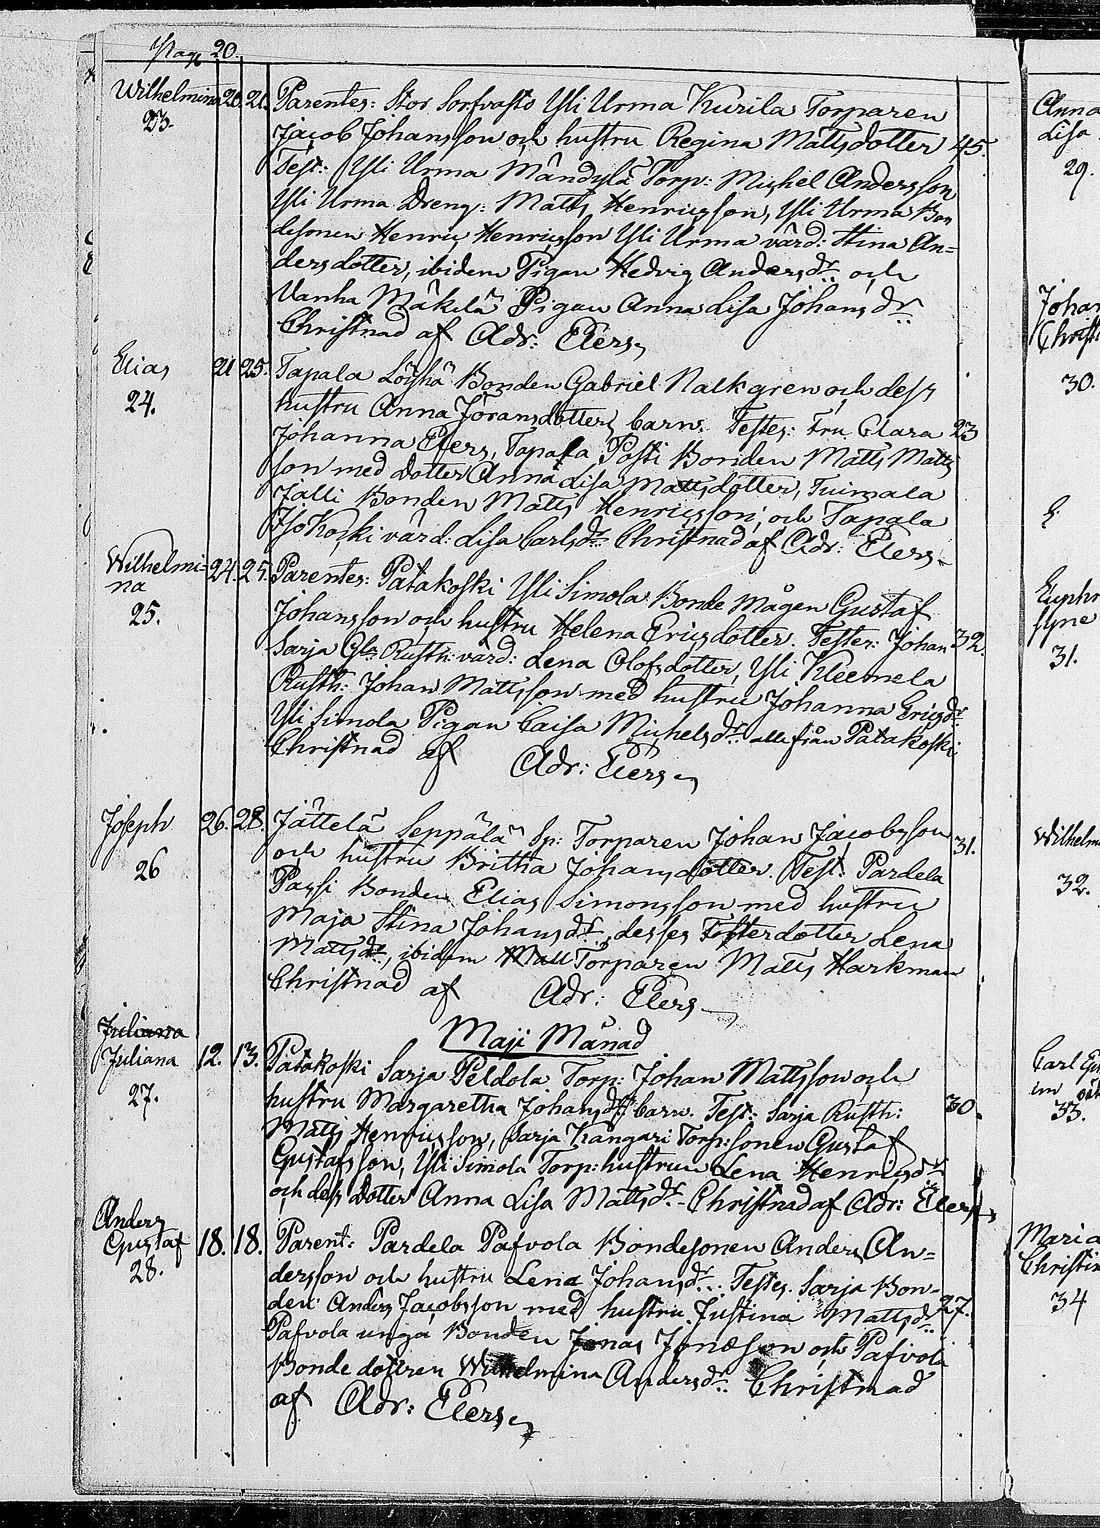 Pag. 20.
Wilhelmina 20. 21. Parentes: Stor Sorfvasto Yli Urma Kurila Torparen
23.
Jacob Johansson och hustru Regina Mattsdotter 45.
Test: Yli Urma Mändylä Torp: Michel Andersson
Yli Urma Dreng: Matts Henricsson, Yli Urma Bon
desonen Henric Henricsson Yli Urma värd: Stina An=
dersdotter, ibidem Pigan Hedvig Andersdr. och
Vanha Mäkelä Pigan Anna Lisa Johansdr.
Christnad af Adr: Elers
Elias 21 25. Tapala Löyhä Bonden Gabriel Nalkgren och dess
24.
hustru Anna Jöransdotters barn. Testes: Fru Clara 23
Johanna Elers, Tapala Posti Bonden Matts Matts
son med dotter Anna Lisa Mattsdotter, Tuimala
Jalli Bonden Matts Henricsson, och Tapala
Isokoski värd: Lisa Carlsdr. Christnad af Adr: Elers
Wilhelmi- 24. 25. Parentes: Patakoski Yli Simola Bonde Mågen Gustaf
na
25.
Johansson och hustru Helena Ericsdotter. Testes: Johan 32.
Sarja Gla Rusth: värd: Lena Olofsdotter, Yli Kleemela
Rusth: Johan Mattsson med hustru Johanna Ericsdr.
Yli Simola Pigan Caisa Michelsdr. alla från Patakoski
Christnad af Adr: Elers
Joseph 26. 28. Jättelä Seppälä Sp: Torparen Johan Jacobsson
26
och hustru Britha Johansdotter. Test. Pardela 31.
Paysi Bonden Elias Simonsson med hustru
Maja Stina Johansdr. desses Fosterdotter Lena
Mattsdr., ibidem Torparen Matts Harkman
Christnad af Adr: Elers
Maji Månad
Juliana
Juliana 12. 13. Patakoski Sarja Peldola Torp: Johan Mattsson och
27.
hustru Margaretha Johansdrs barn. Test: Sarja Rusth: 30.
Matts Henricsson, Sarja Kangari Torp: sonen Gustaf
Gustafsson, Yli Simola Torp: hustrun Lena Henricsdr
och dess dotter Anna Lisa Mattsdr. Christnad af Adr: Elers
Anders
Gustaf 18. 18. Parent: Pardela Pafvola Bondesonen Anders An=
28.
dersson och hustru Lena Johansdr. Testes. Sarja Bon-
den Anders Jacobsson med hustru Justina Mattsdr. 27.
Pafvola unga Bonden Jonas Jonæson och Pafvola
Bonde dottren Wilhelmina Andersdr. Christnad
af Adr: Elers
Anna
Lisa
29.
Johan
Christ
30.
E.
Euphro
syne
31.
Wilhelm
32.
Carl Gu
33.
Maria
Christin
34